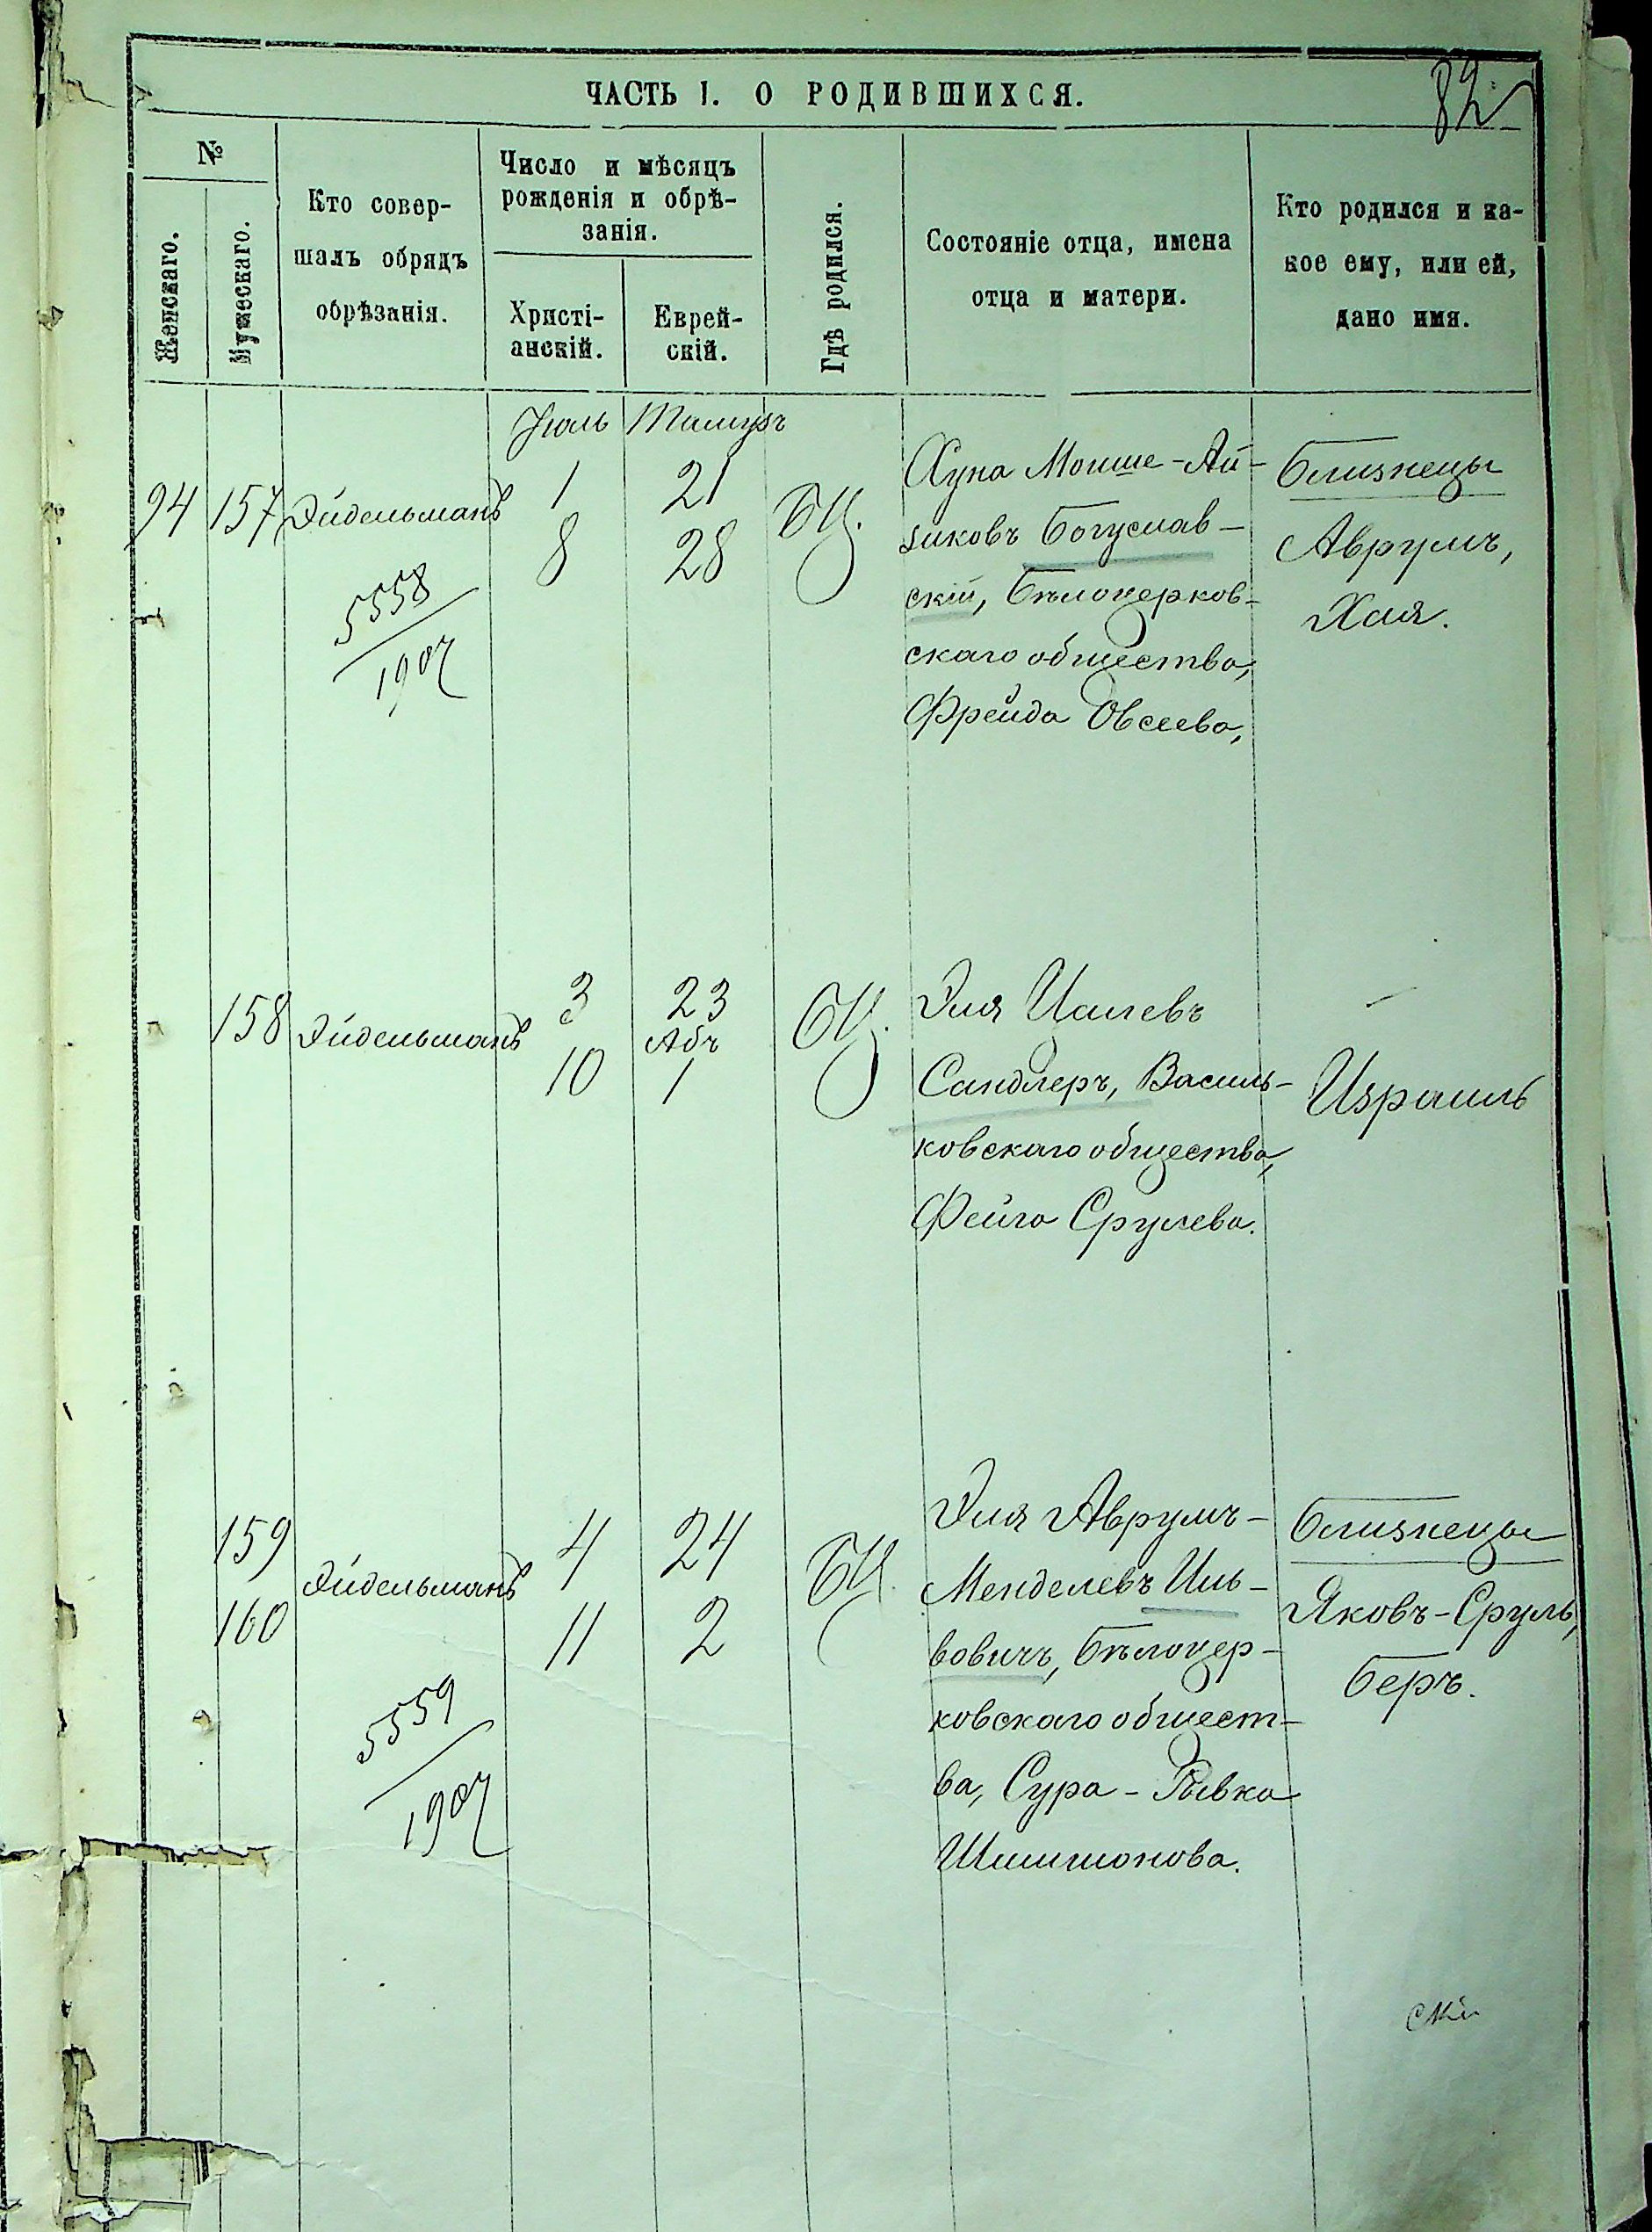 ЧАСТЬ I. О РОДИВШИХСЯ.
82
№
Женскаго.
Мужескаго.
Кто совер-
шалъ обрядъ
обрѣзанія.
Число и мѣсяцъ
рожденія и обрѣ-
занія.
Христі-
анскій.
Еврей-
скій.
Гдѣ родился.
Состояніе отца, имена
отца и матери.
Кто родился и ка-
кое ему, или ей,
дано имя.
Іюль Тамузъ
94 157 Эйдельманъ 1 21 БЦ.
8 28
5558
1907
Хуна Мошше-Ай-
зиковъ Богуслав-
скій, Бѣлоцерков-
скаго общества,
Фрейда Овсеева,
Близнецы
Аврумъ,
Хая.
158 Эйдельманъ 3 23 БЦ.
Абъ
10 1
Эля Ицлевъ
Сандлеръ, Василь-
ковскаго общества,
Фейга Срулева.
Израиль
159
160
Эйдельманъ 4 24 БЦ.
11 2
5559
1907
Эля Аврумъ-
Менделевъ Иль-
вовичъ, Бѣлоцер-
ковскаго общест-
ва, Сура-Рывка
Шимшонова.
Близнецы
Яковъ-Сруль,
Беръ.